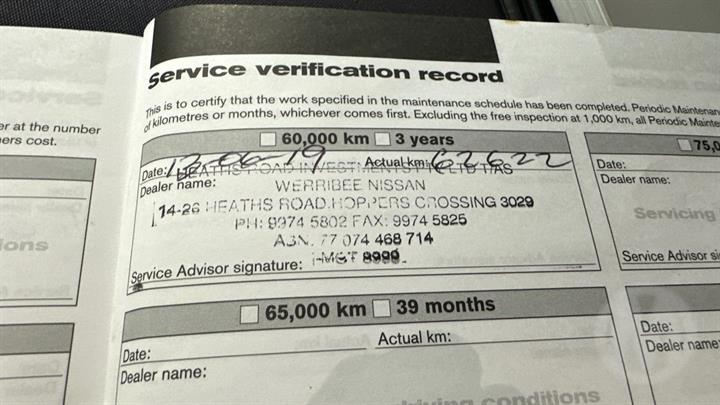 Service verification record
This is to certify that the work specified in the maintenance schedule has been completed. Periodic Maintenan
of kilometres or months, whichever comes first. Excluding the free inspection at 1,000 km, all Periodic Mainte
er at the number
ers cost.
60,000 km 3 years
Date: 12-06-19 Actual km: 62622
HEATHS ROAD INVESTMENTS P/L T/AS
Dealer name:
WERRIBEE NISSAN
14-26 HEATHS ROAD.HOPPERS CROSSING 3029
PH: 9974 5802 FAX: 9974 5825
ABN. 77 074 468 714
Service Advisor signature:
75,0
Date:
Dealer name:
Servicing
Service Advisor si
ions
65,000 km 39 months
Date: Actual km:
Dealer name:
Date:
Dealer name:
driving conditions